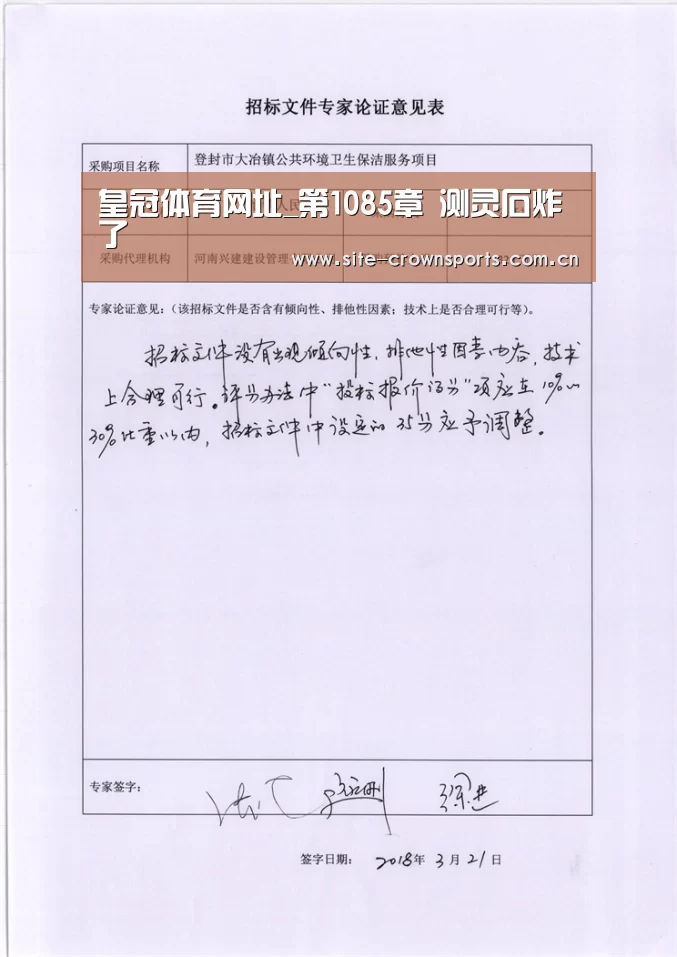 招标文件专家论证意见表
采购项目名称
登封市大冶镇公共环境卫生保洁服务项目
人民
皇冠体育网址_第1085章 测灵石炸
了
采购代理机构
河南兴建建设管理
www.site-crownsports.com.cn
专家论证意见：（该招标文件是否含有倾向性、排他性因素；技术上是否合理可行等）。
招标文件没有出现倾向性，排他性因素内容，技术
上合理可行。评分办法中“投标报价得分”项应在10%以
30%比重以内，招标文件中设定的35分应予调整。
专家签字：
签字日期：
2018年3月21日